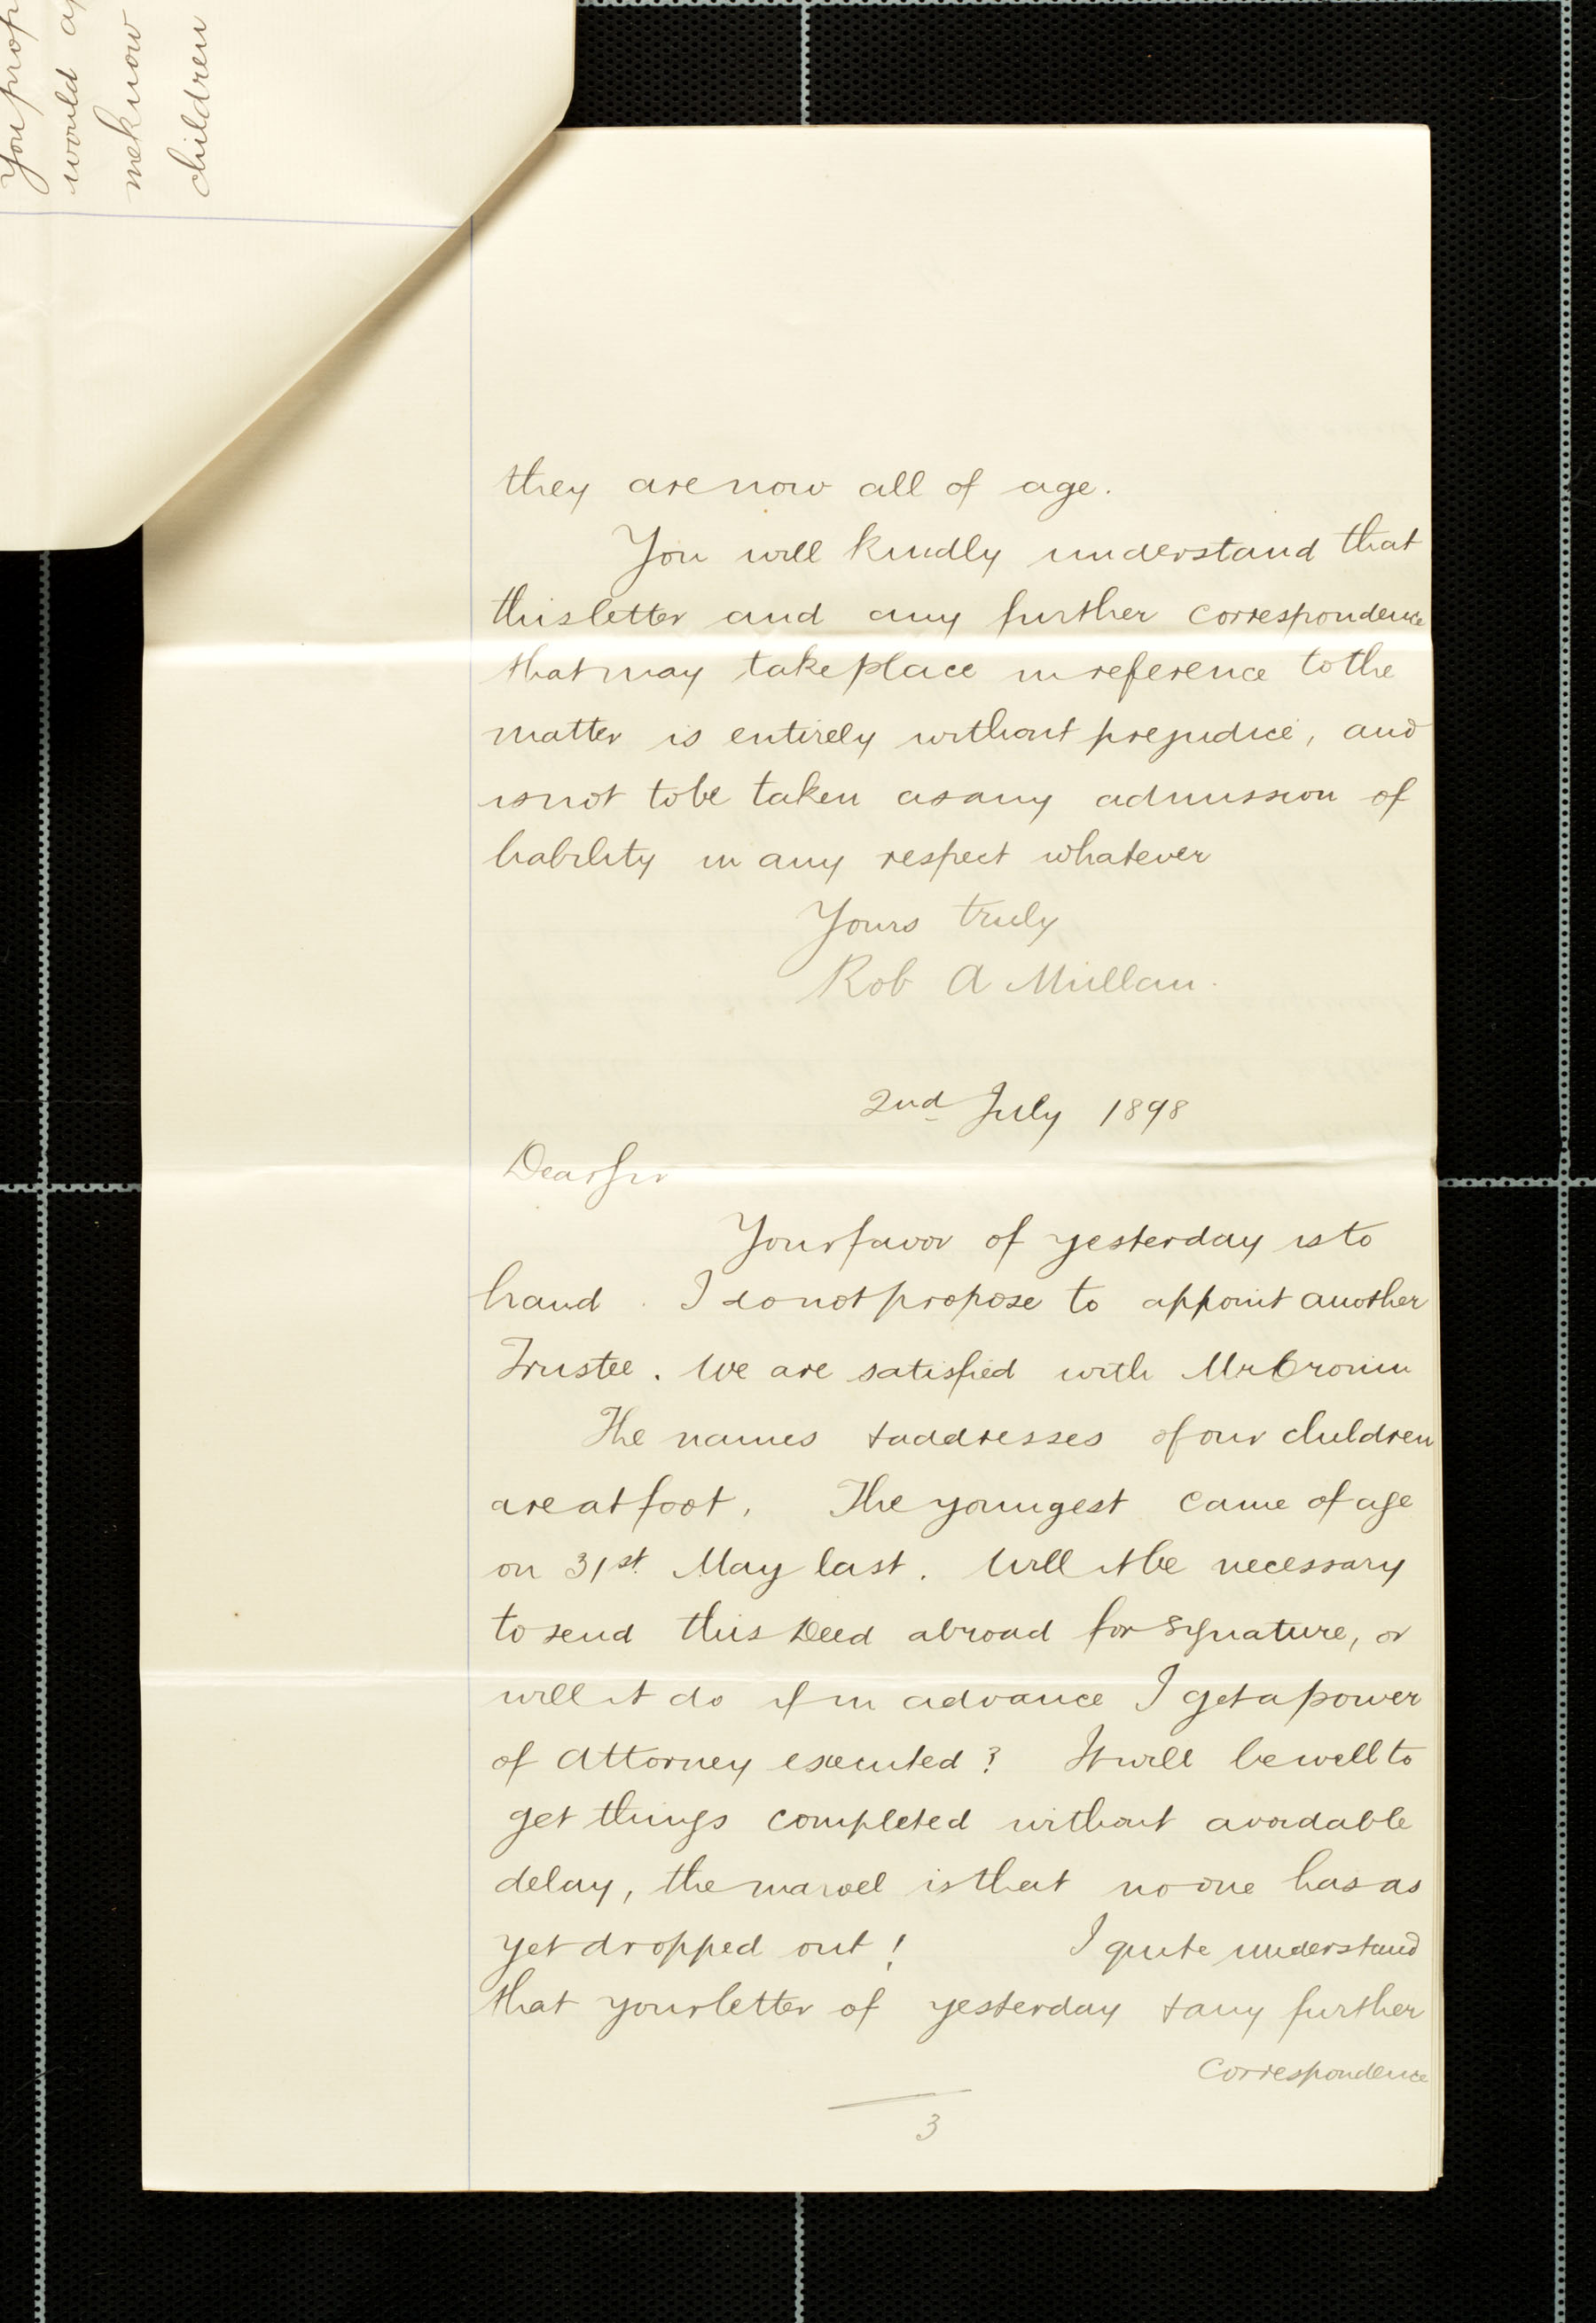 you prop
would ap
me know
children
they are now all of age.
You will kindly understand that
this letter and any further correspondence
that may take place in reference to the
matter is entirely without prejudice, and
is not to be taken as any admission of
liability in any respect whatever
Yours truly
Rob A Mullan.
2nd July 1898
Dear Sir
Your favor of yesterday is to
hand. I do not propose to appoint another
Trustee. We are satisfied with Mr Cronin
The names & addresses of our children
are at foot. The youngest came of age
on 31st May last. Will it be necessary
to send this Deed abroad for signature, or
will it do if in advance I get a power
of Attorney executed? It will be well to
get things completed without avoidable
delay, the marvel is that no one has as
yet dropped out! I quite understand
that your letter of yesterday & any further
Correspondence
3